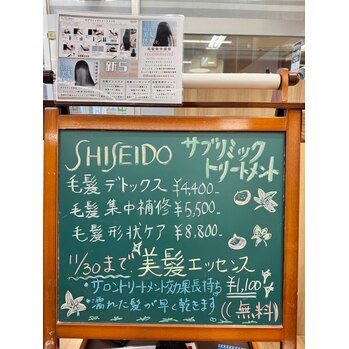 新う
recommend
SHISEIDO サブリミック
トリートメント
毛髪デトックス ¥4400-
毛髪集中補修 ¥5,500-
毛髪形状ケア ¥8,800-
11/30まで 美髪エッセンス
・サロントリートメント効果長持ち ¥1,100
・濡れた髪が早く乾きます (無料)